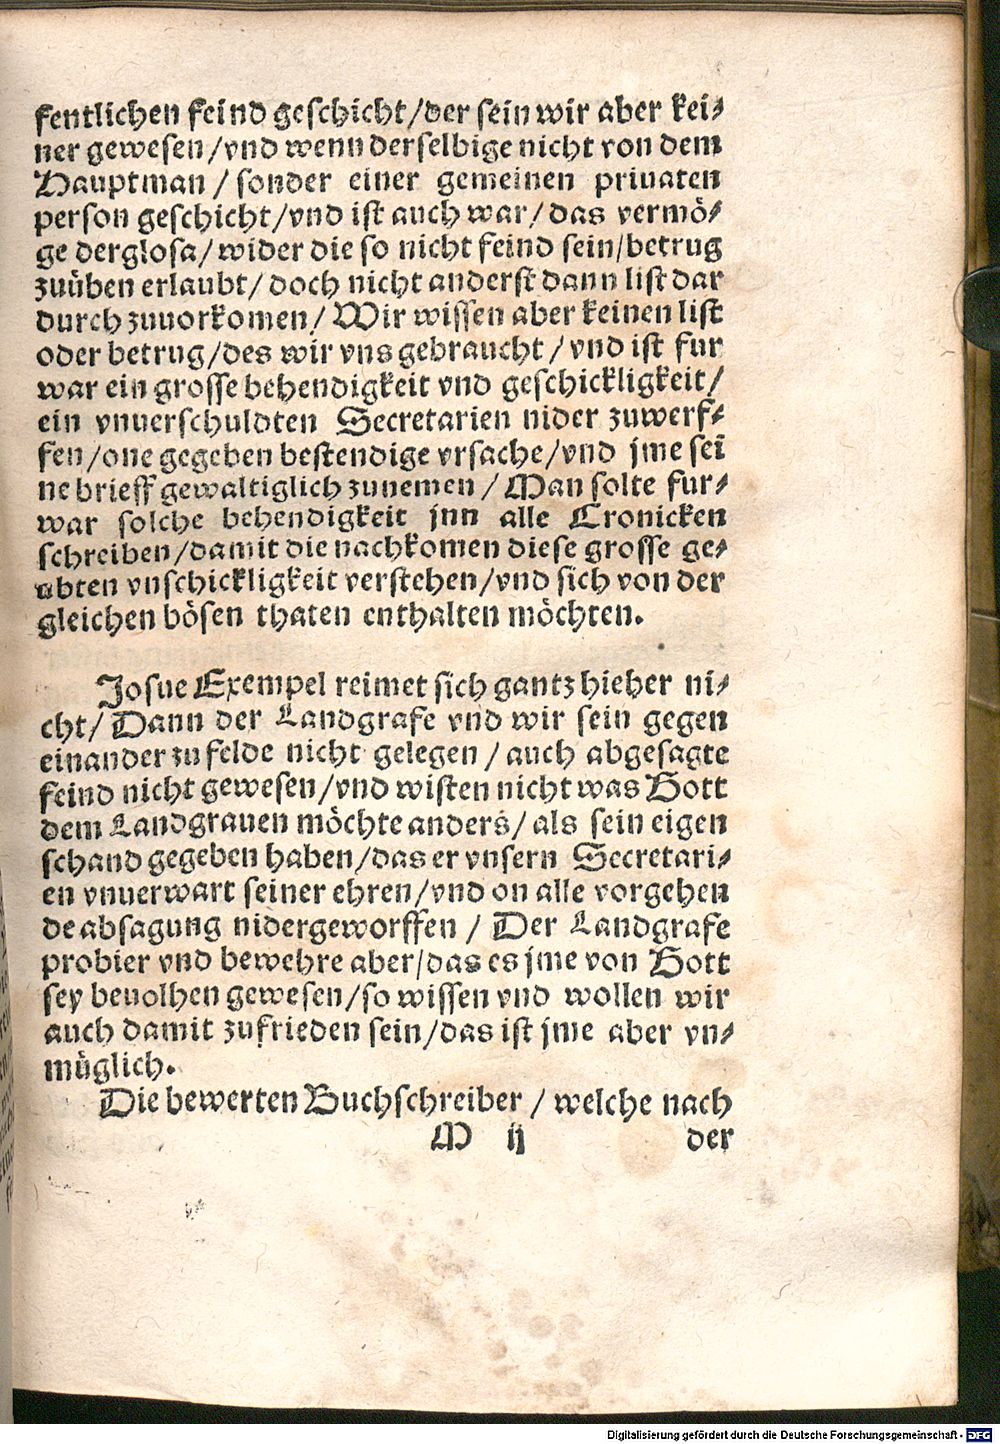 fentlichen feind geschicht/der sein wir aber kei⸗
ner gewesen/vnd wenn derselbige nicht von dem
Hauptman / sonder einer gemeinen priuaten
person geschicht/vnd ist auch war/ das vermö⸗
ge derglosa/ wider die so nicht feind sein/betrug
zuüben erlaubt/ doch nicht anderst dann list dar
durch zuuorkomen/ Wir wissen aber keinen list
oder betrug/des wir vns gebraucht / vnd ist fur
war ein grosse behendigkeit vnd geschickligkeit/
ein vnuerschuldten Secretarien nider zuwerf⸗
fen/one gegeben bestendige vrsache/vnd jme sei
ne brieff gewaltiglich zunemen / Man solte fur⸗
war solche behendigkeit jnn alle Cronicken
schreiben/damit die nachkomen diese grosse ge⸗
vbten vnschickligkeit verstehen/vnd sich von der
gleichen bösen thaten enthalten möchten.
Josue Exempel reimet sich gantz hieher ni⸗
cht/ Dann der Landgrafe vnd wir sein gegen
einander zu felde nicht gelegen / auch abgesagte
feind nicht gewesen/vnd wisten nicht was Gott
dem Landgrauen möchte anders/ als sein eigen
schand gegeben haben/das er vnsern Secretari⸗
en vnuerwart seiner ehren/vnd on alle vorgehen
de absagung nidergeworffen / Der Landgrafe
probier vnd bewehre aber/das es jme von Gott
sey beuolhen gewesen/so wissen vnd wollen wir
auch damit zufrieden sein/das ist jme aber vn⸗
müglich.
Die bewerten Buchschreiber / welche nach
M ij der
Digitalisierung gefördert durch die Deutsche Forschungsgemeinschaft - DFG